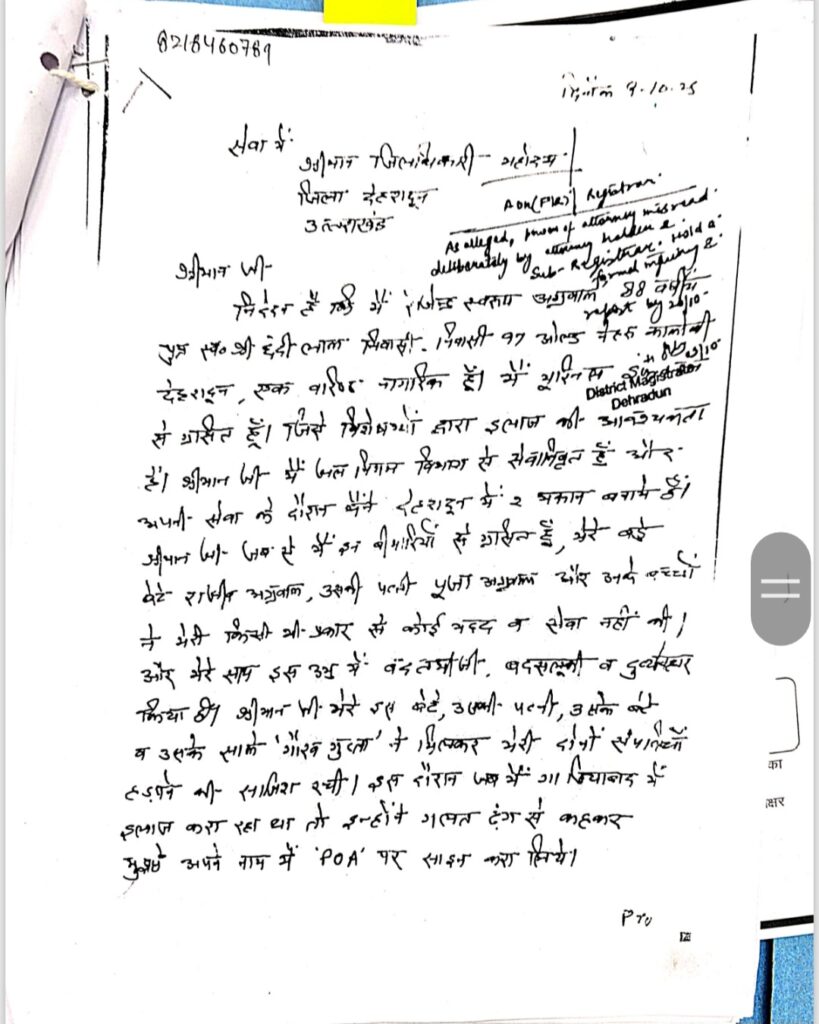 8218460789
दिनांक 9.10.25
सेवा में
श्रीमान जिलाधिकारी महोदय
जिला देहरादून
उत्तराखंड
ADM(F/R) / Registrar
As alleged, power of attorney misread
deliberately by attorney holder &
Sub-Registrar. Hold a
formal inquiry &
report by
श्रीमान जी-
निवेदन है कि मैं राजेन्द्र स्वरूप अग्रवाल 88 वर्षीय
पुत्र स्व० श्री लाल निवासी 97 ओल्ड नेहरू कालोनी
देहरादून, एक वरिष्ठ नागरिक हूँ। मैं यूरिनल
District Magistrate
Dehradun
से ग्रसित हूँ। जिसे विशेषज्ञों द्वारा इलाज की आवश्यकता
है। श्रीमान जी मैं जल निगम विभाग से सेवानिवृत हूँ और
अपनी सेवा के दौरान मैंने देहरादून में 2 मकान बनाये हैं।
श्रीमान जी जब से मैं इन बीमारियों से ग्रसित हूँ, मेरे बड़े
बेटे राजीव अग्रवाल, उसकी पत्नी पूजा अग्रवाल और उनके बच्चों
ने मेरी किसी भी प्रकार से कोई मदद व सेवा नहीं की।
और मेरे साथ इस उम्र में बदतमीजी, बदसलूकी व दुर्व्यवहार
किया है। श्रीमान जी मेरे इस बेटे, उसकी पत्नी, उसके बेटे
व उसके साले 'गौरव गुप्ता' ने मिलकर मेरी दोनों संपत्तियाँ
हड़पने की साजिश रची। इस दौरान जब मैं गाजियाबाद में
इलाज करा रहा था तो इन्होंने गलत ढंग से कहकर
मुझसे अपने नाम में 'POA' पर साइन करा लिये।
का
क्षर